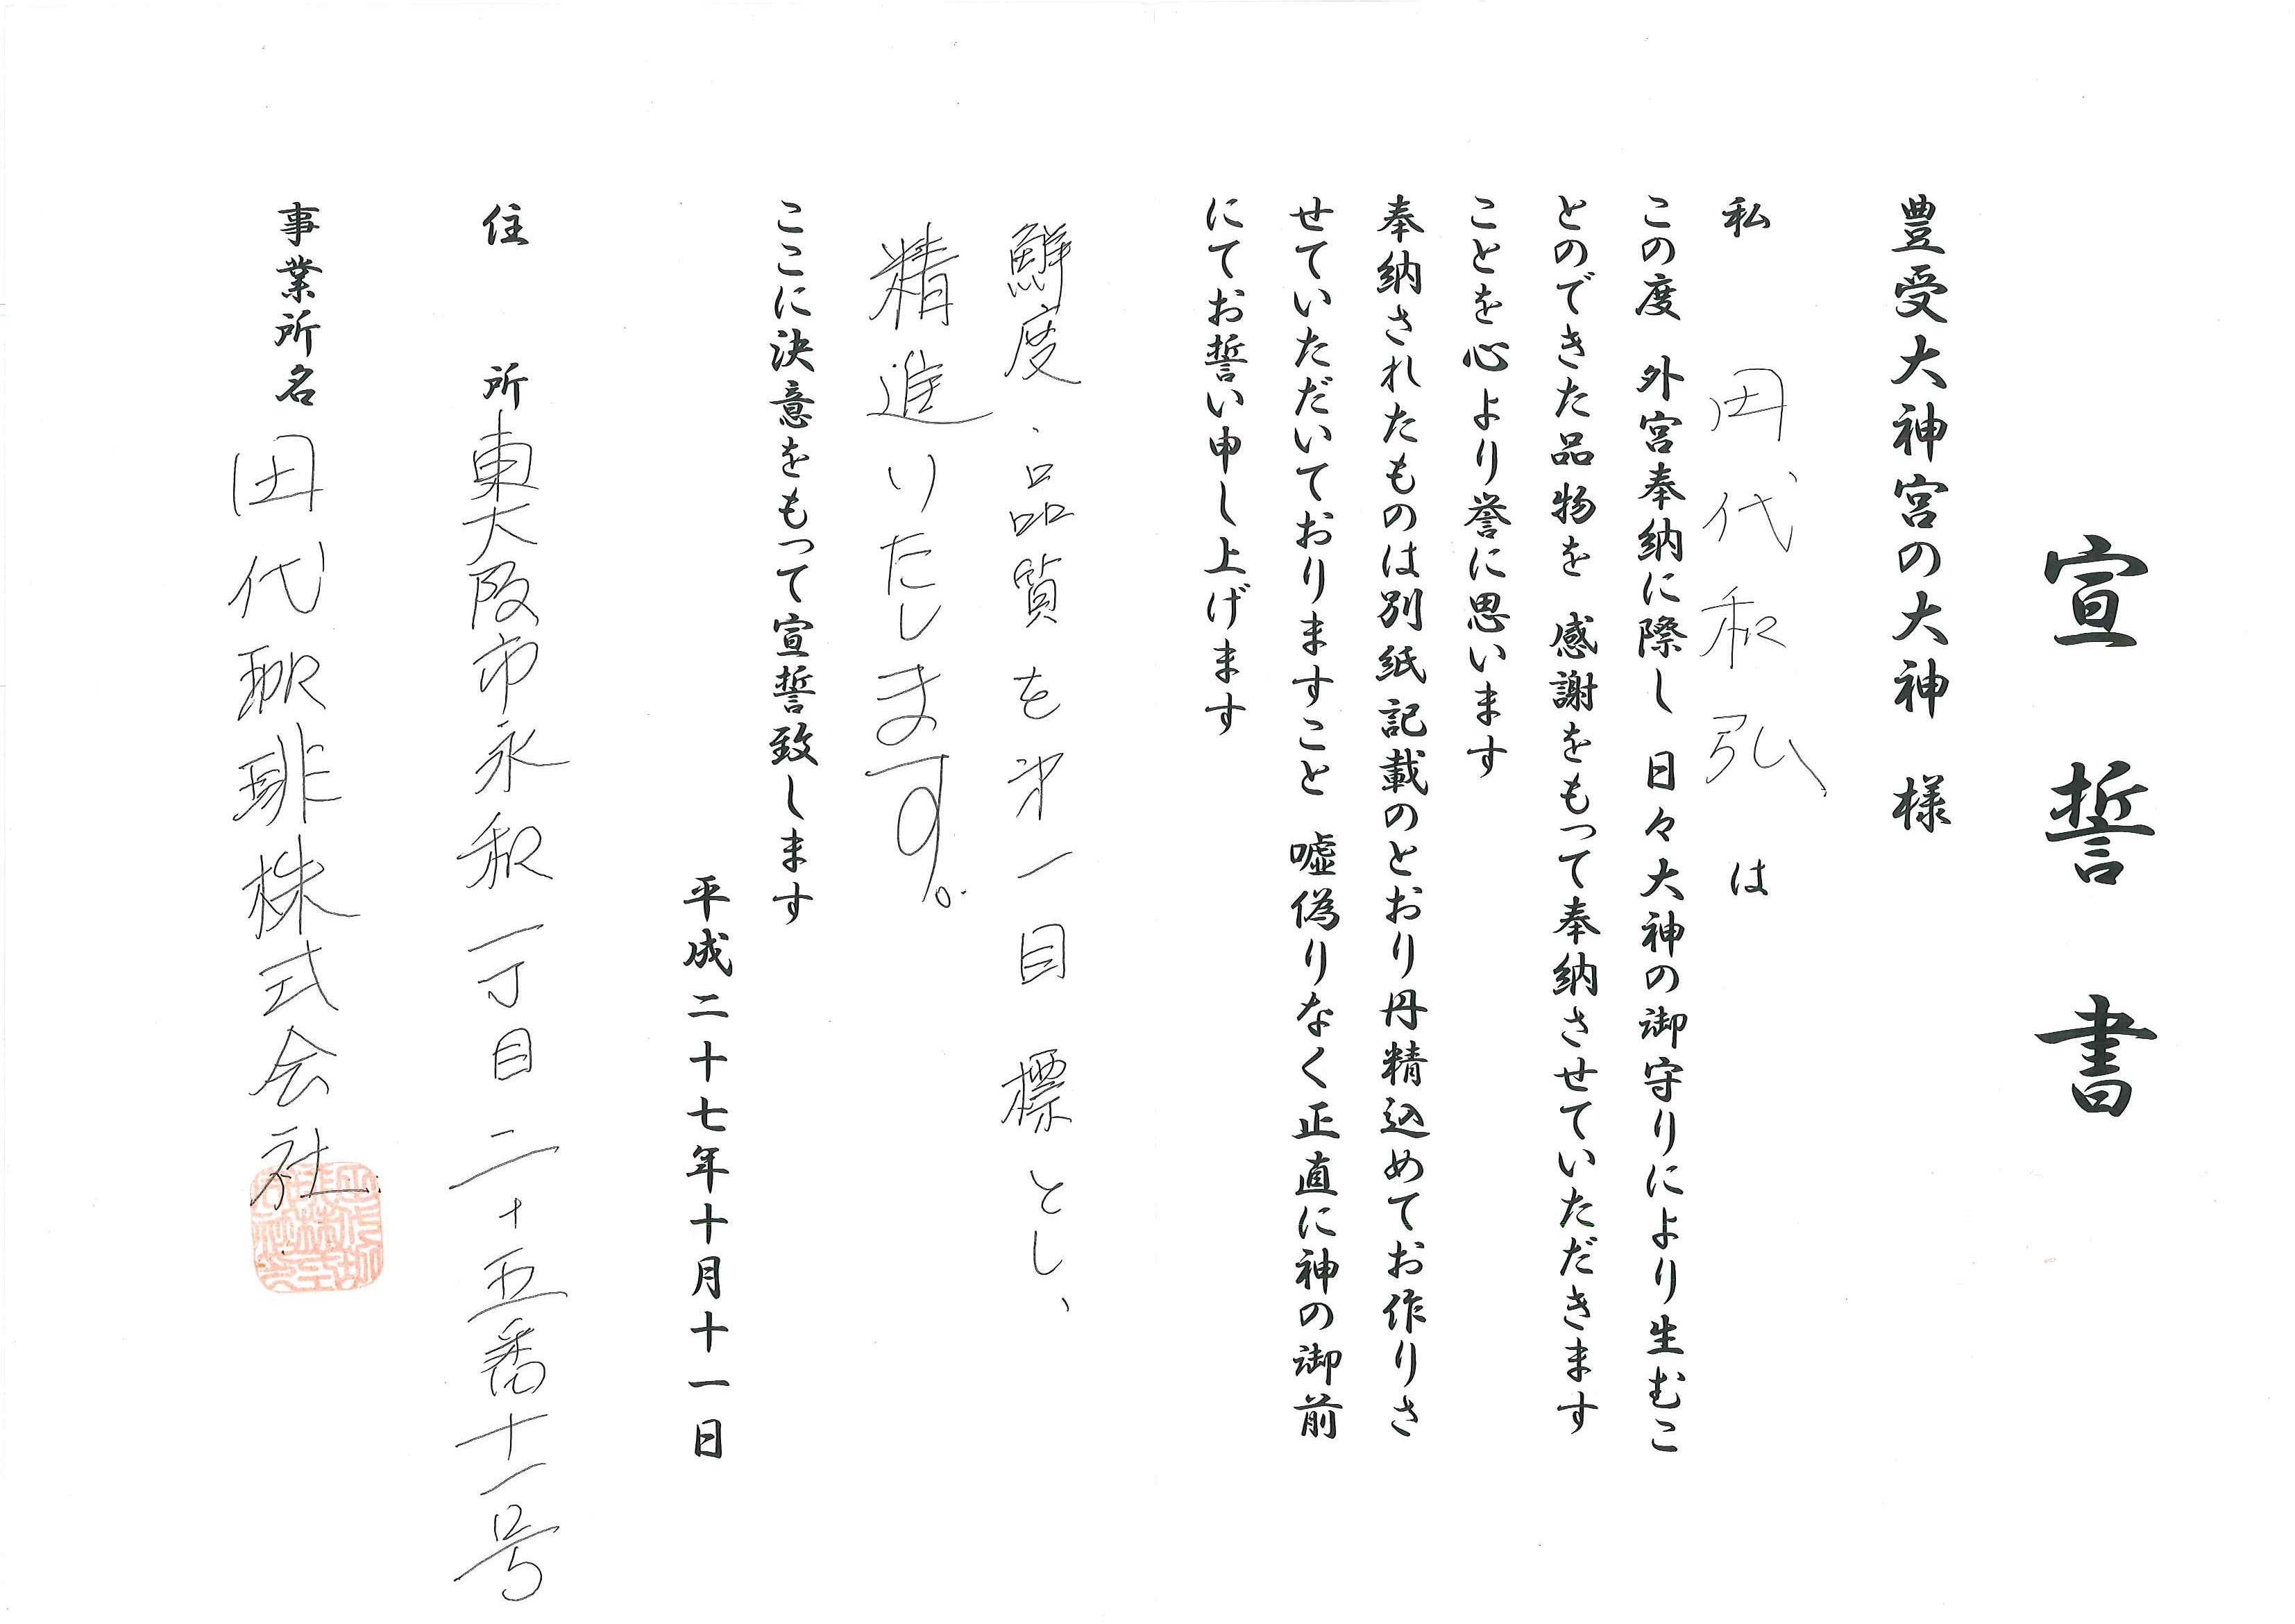 宣誓書
豊受大神宮の大神 様
私 田代和弘 は
この度 外宮奉納に際し 日々大神の御守りにより生むこ
とのできた品物を 感謝をもって奉納させていただきます
ことを心より誉に思います
奉納されたものは別紙記載のとおり丹精込めてお作りさ
せていただいておりますこと 嘘偽りなく正直に神の御前
にてお誓い申し上げます
鮮度、品質を第一目標とし、
精進いたします。
ここに決意をもって宣誓致します
平成二十七年十月十一日
住所 東大阪市永和一丁目二十五番十一号
事業所名 田代珈琲株式会社